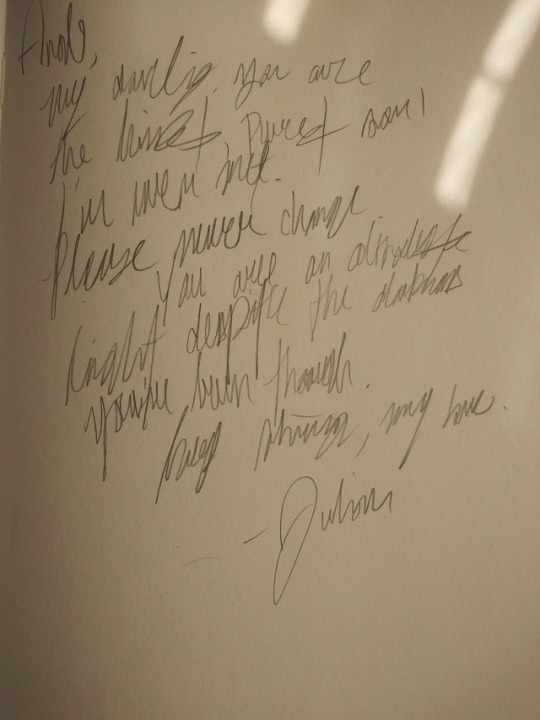 my darling. You are
the kindest, purest soul
I'm ever met.
Please never change.
You are an
light despite the darkness
you've been through.
keep strong, my love.
- Julian